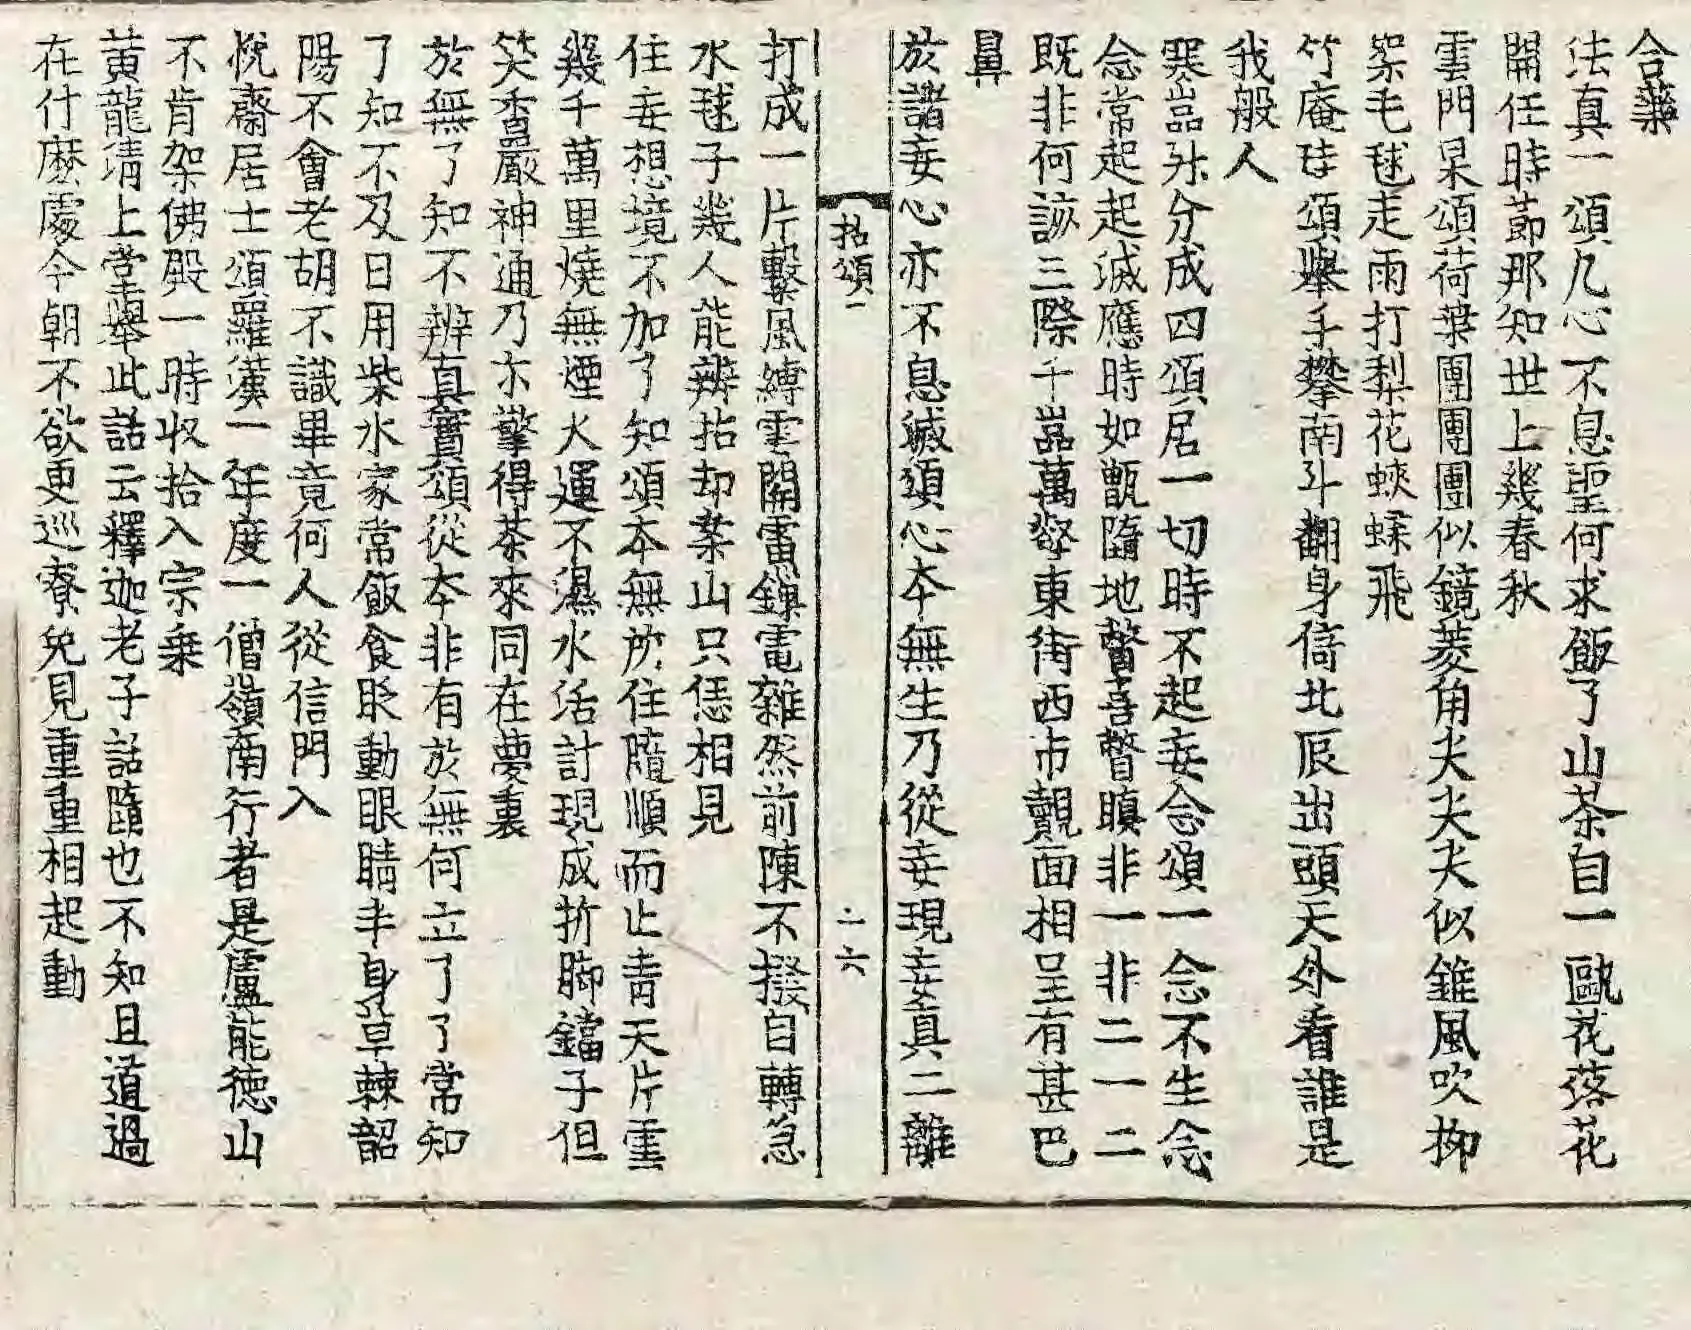 合藥
法真一頌凡心不息聖何求飯了山茶自一甌花落花
開任時莭那知世上幾春秋
雲門杲頌荷葉團團團似鏡菱角尖尖尖似錐風吹柳
絮毛毬走雨打梨花蛺蝶飛
竹庵珪頌舉手攀南斗翻身倚北辰出頭天外看誰是
我般人
寒嵓升分成四頌居一切時不起妄念頌一念不生念
念常起起滅應時如甑墮地瞥喜瞥瞋非一非二一二
既非何該三際千嵓萬壑東街西市覿面相呈有甚巴
鼻
於諸妄心亦不息滅頌心本無生乃從妄現妄真二離
拈頌一
二六
打成一片繫風縳雲開雷鏁電雜然前陳不撥自轉急
水毬子幾人能辨拈却案山只恁相見
住妄想境不加了知頌本無所住隨順而止青天片雲
幾千萬里燒無煙火運不濕水活計現成折脚鐺子但
笑香嚴神通乃亦擎得茶來同在夢裏
於無了知不辨真實頌從本非有於無何立了了常知
了知不及日用柴水家常飯食眨動眼睛丰身草棘韶
陽不會老胡不識畢竟何人從信門入
悅齋居士頌羅漢一年度一僧嶺南行者是盧能德山
不肯架佛殿一時收拾入宗乗
黃龍清上堂舉此話云釋迦老子話墮也不知且道過
在什麽處今朝不欲更巡寮免見重重相起動